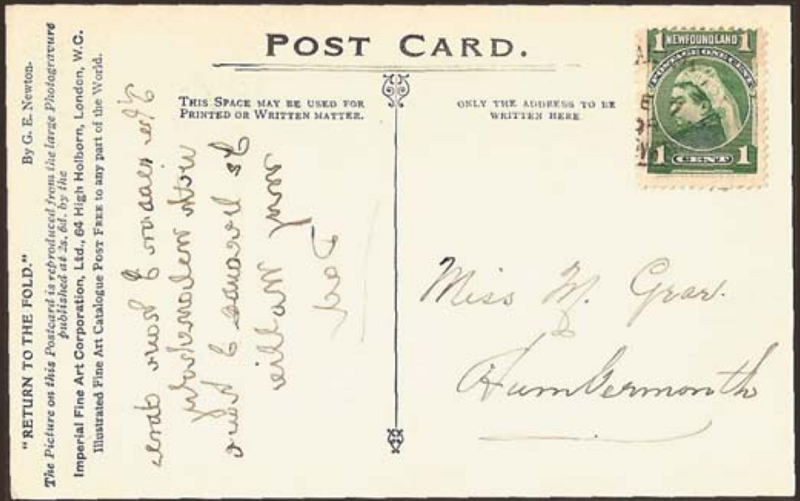 POST CARD.
THIS SPACE MAY BE USED FOR
PRINTED OR WRITTEN MATTER.
ONLY THE ADDRESS TO BE
WRITTEN HERE
1 NEWFOUNDLAND 1
POSTAGE ONE CENT
1 CENT 1
"RETURN TO THE FOLD." By G. E. Newton.
The Picture on this Postcard is reproduced from the large Photogravure
published at 2s. 6d. by the
Imperial Fine Art Corporation, Ltd., 64 High Holborn, London, W.C.
Illustrated Fine Art Catalogue POST FREE to any part of the World.
The reason I
Miss M. Grav.
Humbermouth